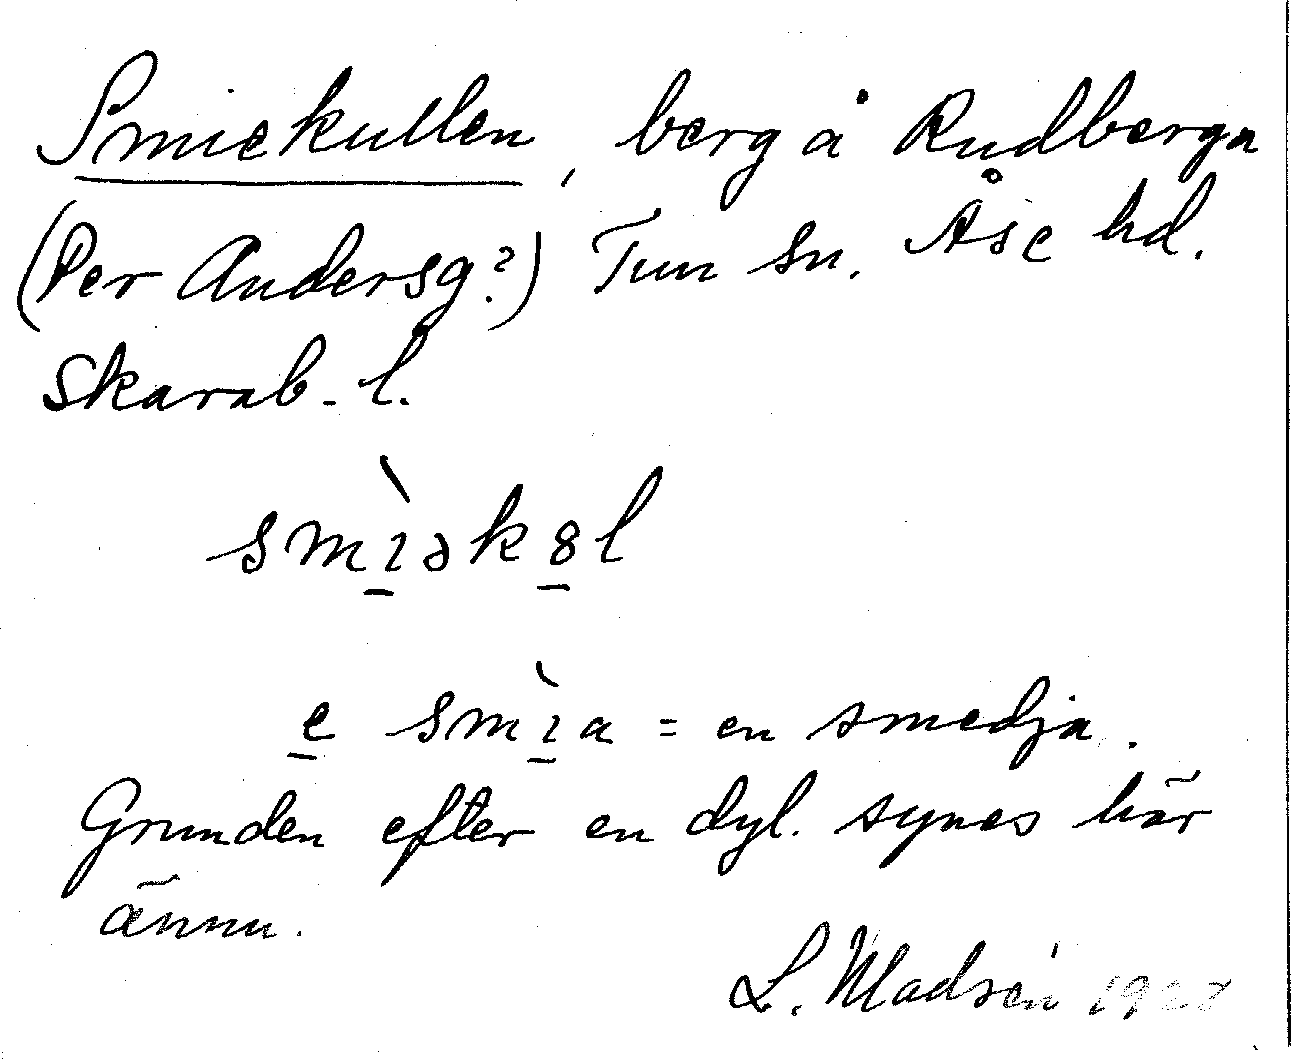 Smiekullen, berg å Rudberga
(Per Andersg.?) Tun sn. Åse hd.
Skarab. l.
smìək8l
e smìa = en smedja.
Grunden efter en dyl. synes här
ännu.
L. Madsén 1927